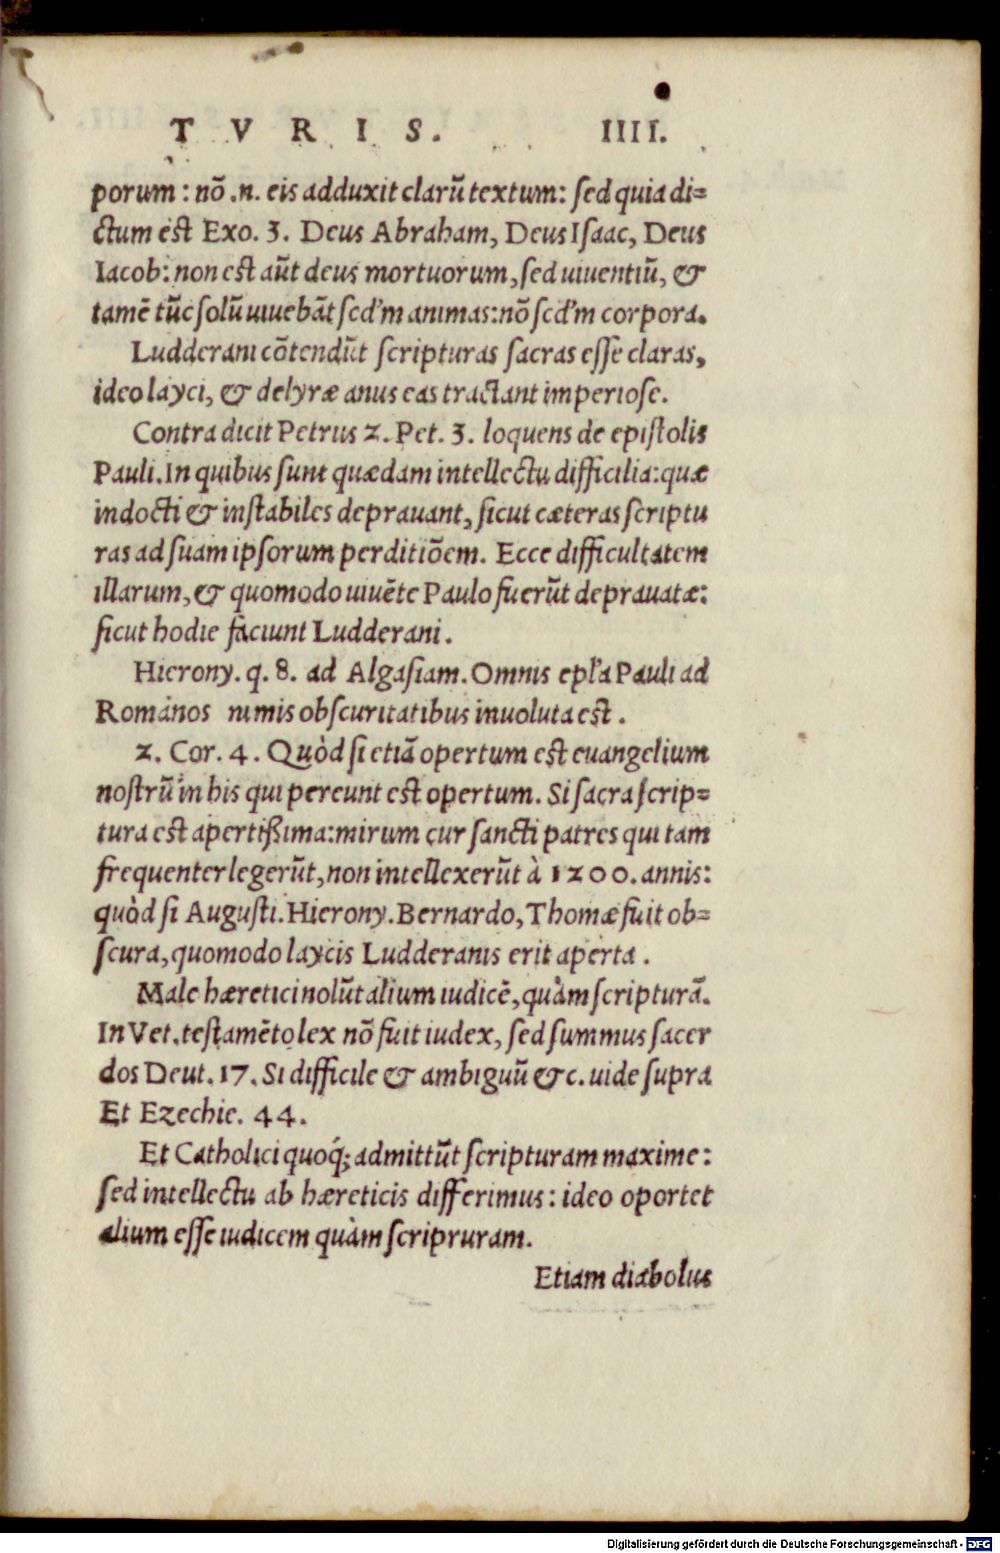 T V R I S. IIII.
porum: nõ .n. eis adduxit clarũ textum: ſed quia di⸗
ctum eſt Exo. 3. Deus Abraham, Deus Iſaac, Deus
Iacob: non eſt aũt deus mortuorum, ſed uiuentiũ, &
tamẽ tũc ſolũ uiuebãt ſed'm animas: nõ ſed'm corpora.
Ludderani cõtendũt ſcripturas ſacras eſſe claras,
ideo layci, & delyræ anus eas tractant imperioſe.
Contradicit Petrus 2. Pet. 3. loquens de epiſtolis
Pauli. In quibus ſunt quædam intellectu difficilia: quæ
indocti & inſtabiles deprauant, ſicut cæteras ſcriptu
ras ad ſuam ipſorum perditiõem. Ecce difficultatem
illarum, & quomodo uiuẽte Paulo fuerũt deprauatæ:
ſicut hodie faciunt Ludderani.
Hierony. q. 8. ad Algaſiam. Omnis epl'a Pauli ad
Romanos nimis obſcuritatibus inuoluta eſt.
2. Cor. 4. Quòd ſi etiã opertum eſt euangelium
noſtrũ in his qui pereunt eſt opertum. Si ſacra ſcrip⸗
tura eſt apertißima: mirum cur ſancti patres qui tam
frequenter legerũt, non intellexerũt à 1200. annis:
quòd ſi Auguſti. Hierony. Bernardo, Thomæ fuit ob⸗
ſcura, quomodo laycis Ludderanis erit aperta.
Male hæretici nolũt alium iudicẽ, quàm ſcripturã.
In Vet. teſtamẽto lex nõ fuit iudex, ſed ſummus ſacer
dos Deut. 17. Si difficile & ambiguũ &c. uide ſupra
Et Ezechie. 44.
Et Catholici quoq́; admittũt ſcripturam maxime:
ſed intellectu ab hæreticis differimus: ideo oportet
alium eſſe iudicem quàm ſcripruram.
Etiam diabolus
Digitalisierung gefördert durch die Deutsche Forschungsgemeinschaft - DFG